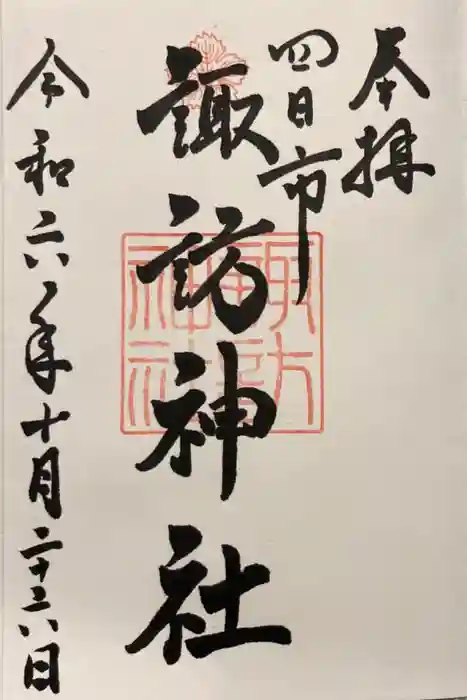 奉拝
四日市
諏訪神社
令和六年十月二十六日
諏訪神社